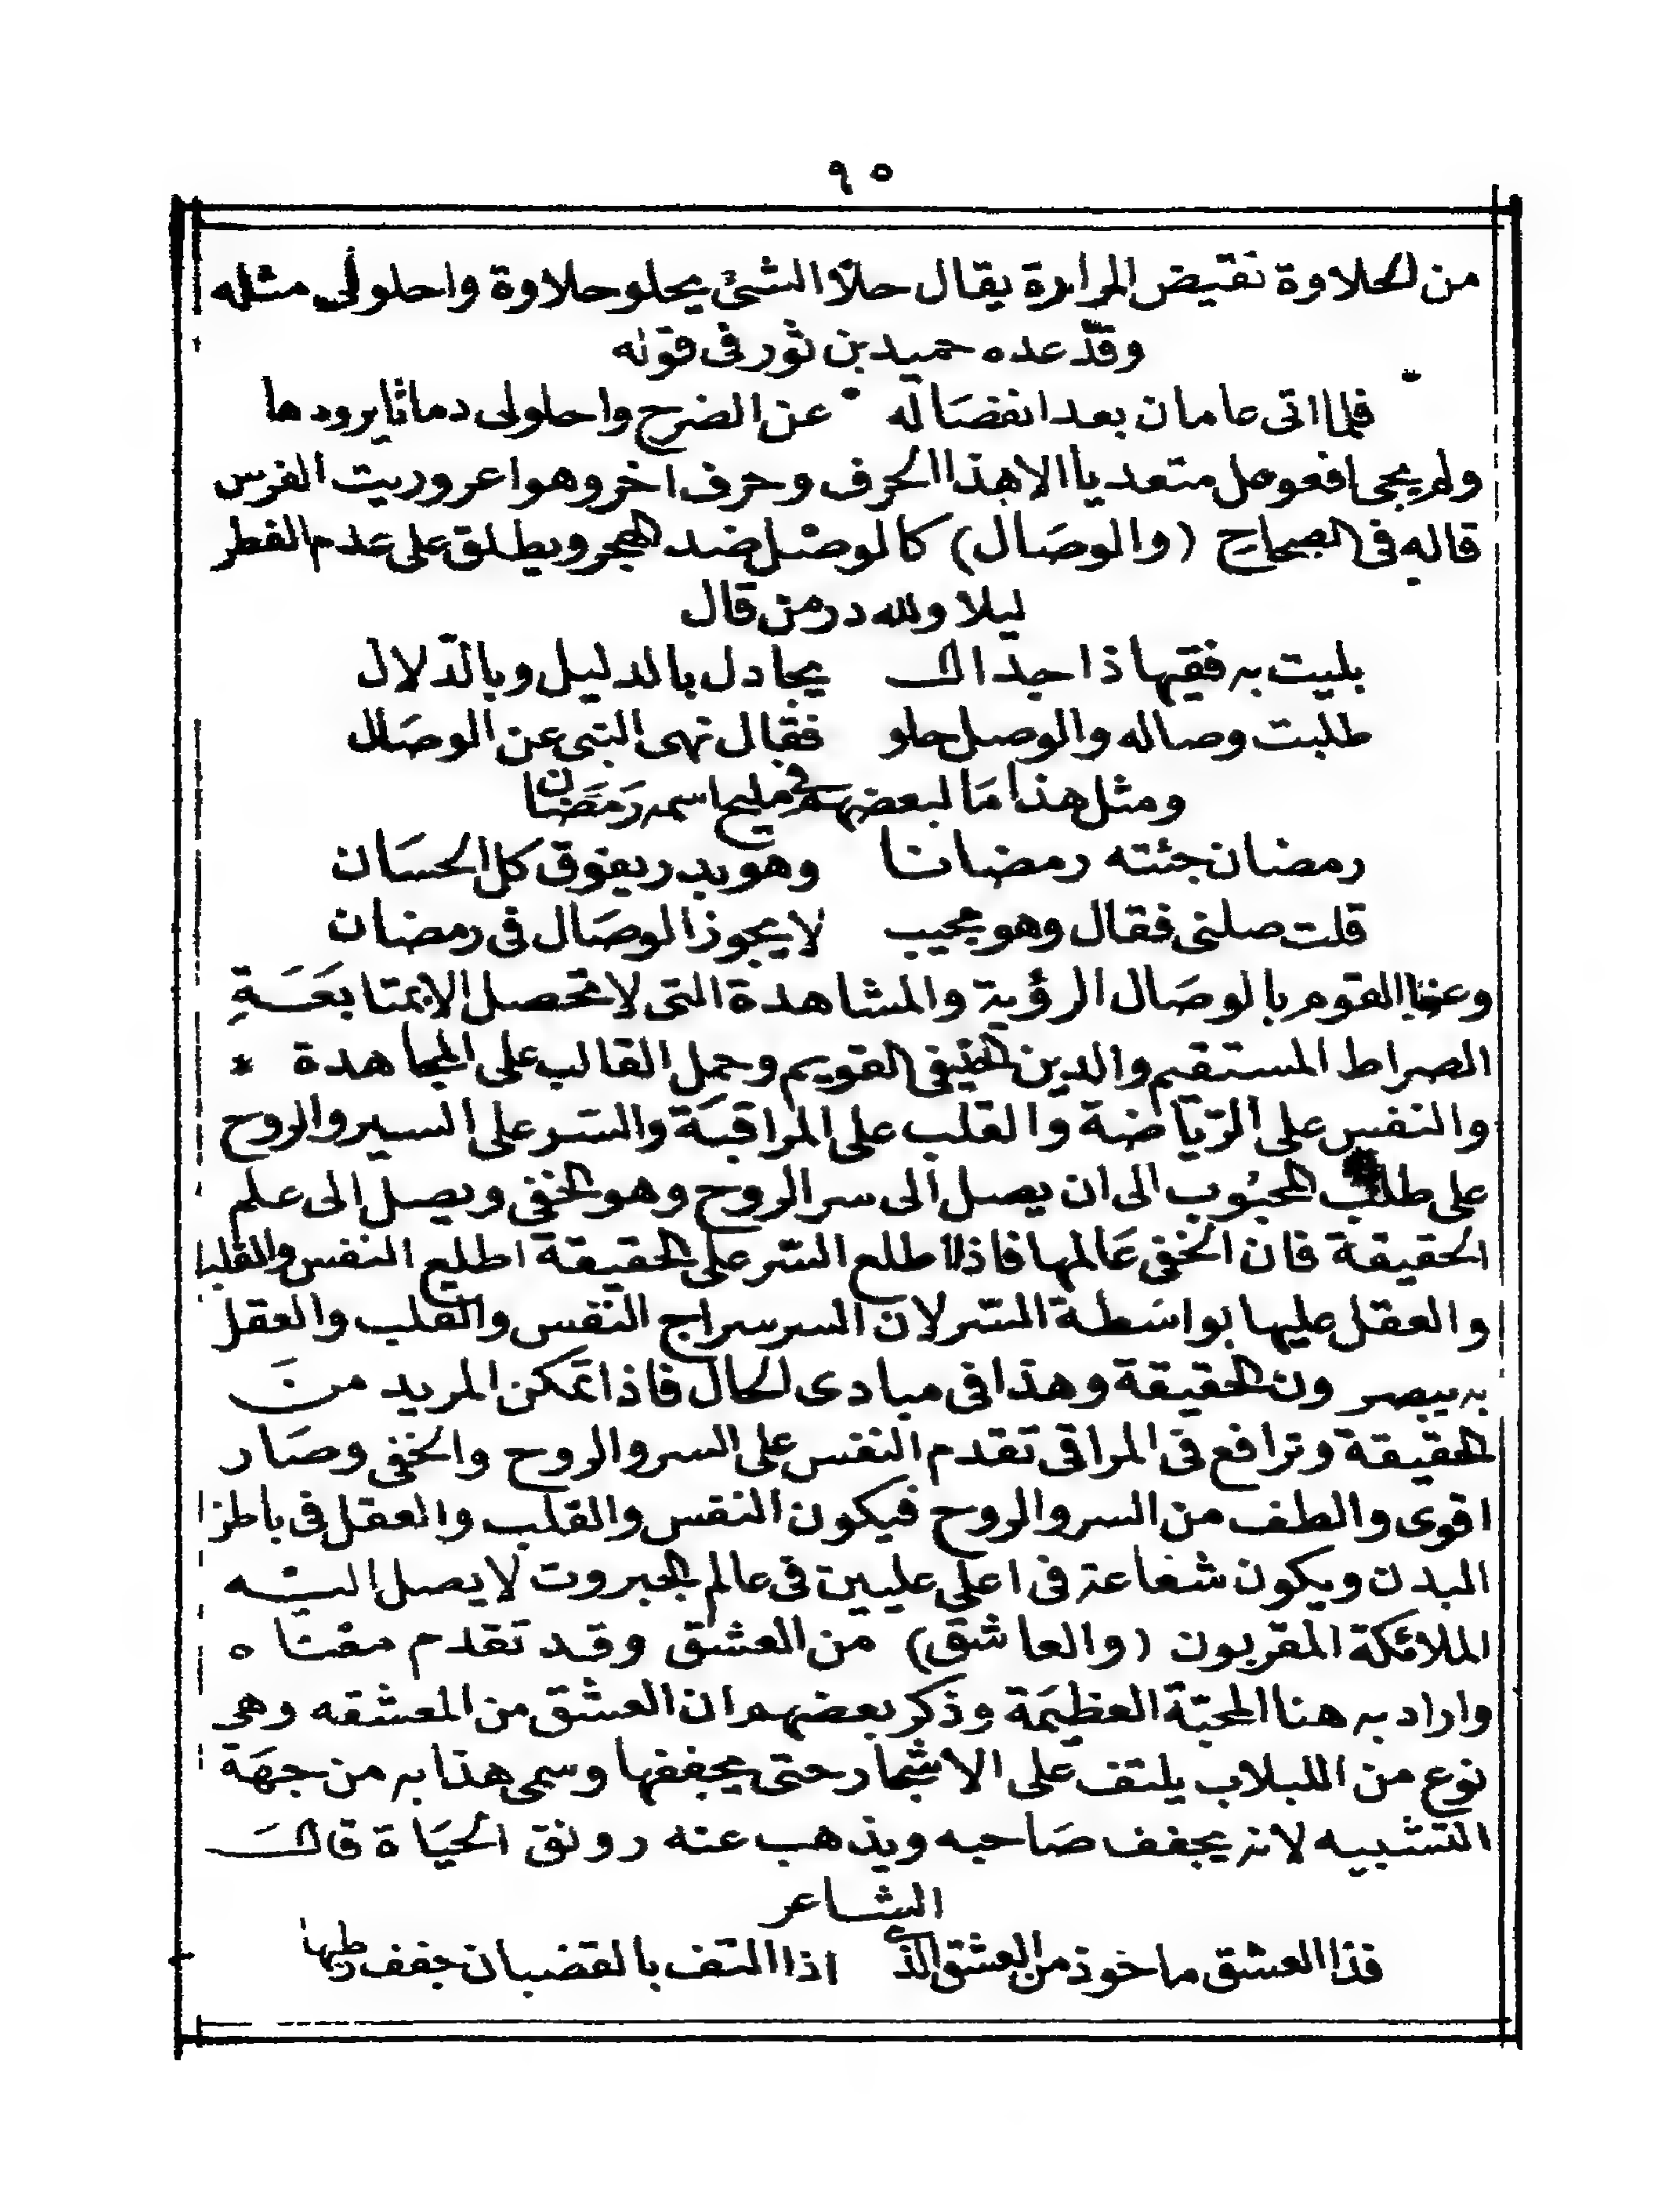 ٩٥
من الحلاوة نقيض المرارة يقال حلا الشئ يحلو حلاوة واحلولى مثله
وقد عده حميد بن ثور فى قوله
فلما اتى عامان بعد انفصاله عن الضرح واحلولى دماثا يرودها
ولم يجى افعوعل متعديا الا هذا الحرف وحرف اخر وهو اعروريت الفرس
قاله فى الصحاح (والوصال) كالوصل ضد الهجر ويطلق على عدم الفطر
ليلا ولله در من قال
بليت به فقيها ذا جدال يجادل بالدليل وبالدلال
طلبت وصاله والوصل حلو فقال نهى النبى عن الوصال
ومثل هذا ما لبعضهم فى مليح اسمه رمضان
رمضان جئته رمضانا وهو بدر يفوق كل الحسان
قلت صلنى فقال وهو مجيب لا يجوز الوصال فى رمضان
وعنا القوم بالوصال الرؤية والمشاهدة التى لا تحصل الا بمتابعة
الصراط المستقيم والدين الحنيفى القويم وحمل القالب على المجاهدة *
والنفس على الرياضة والقلب على المراقبة والسر على السير والروح
على طلب المحبوب الى ان يصل الى سر الروح وهو الخفى ويصل الى علم
الحقيقة فان الخفى عالمها فاذا اطلع السر على الحقيقة اطلع النفس والقلب
والعقل عليها بواسطة السر لان السر سراج النفس والقلب والعقل
به يبصرون الحقيقة وهذا فى مبادى الحال فاذا تمكن المريد من
الحقيقة وترافع فى المراقى تقدم النفس على السر والروح والخفى وصار
اقوى والطف من السر والروح فيكون النفس والقلب والعقل فى باطن
البدن ويكون شعاعه فى اعلى عليين فى عالم الجبروت لا يصل اليه
الملائكة المقربون (والعاشق) من العشق وقد تقدم معناه
واراد به هنا المحبة العظيمة وذكر بعضهم ان العشق من المعشقه وهى
نوع من اللبلاب يلتف على الاشجار حتى يجففها وسمى هذا به من جهة
التشبيه لانه يجفف صاحبه ويذهب عنه رونق الحياة قال
الشاعر
فذا العشق ماخوذ من العشق الذى اذا التف بالقضبان جفف رطبها